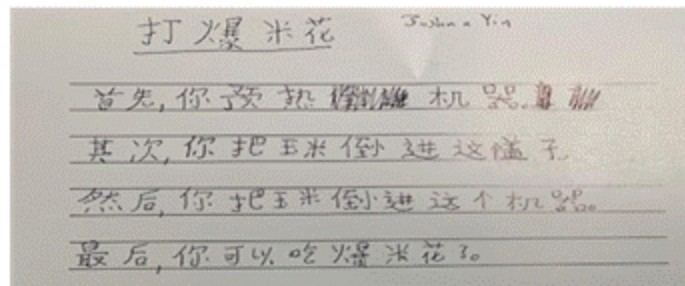 打爆米花 Joshua Yin
首先,你预热机器。
其次,你把玉米倒进这盖子
然后,你把玉米倒进这个机器。
最后,你可以吃爆米花了。